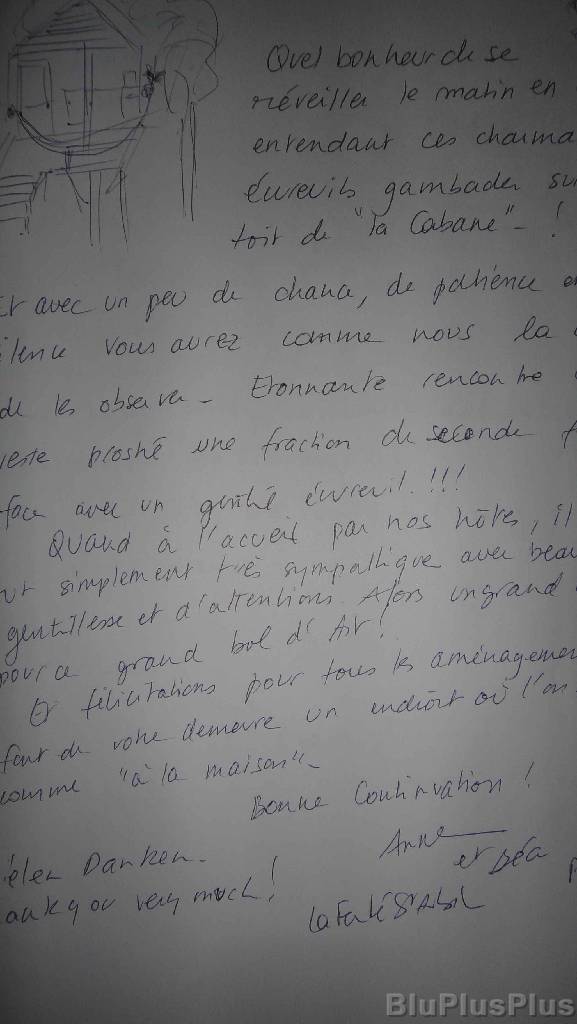 Quel bonheur de se
réveiller le matin en
entendant ces charma
écureuils gambader su
toit de "la Cabane" - !
Et avec un peu de chance, de patience e
ilence vous aurez comme nous la
de les observer - Etonnante rencontre
reste une fraction de seconde f
face avec un gentil écureuil. !!!
Quand à l'accueil par nos hôtes, il
ut simplement très sympathique avec beau
gentillesse et d'attentions. Alors un grand
pour ce grand bol d'Air !
Et félicitations pour tous les aménagemen
font de votre demeure un endroit où l'on
comme "à la maison" -
Bonne Continuation !
Anne
et Déa
ielen Danken.
ank you very much !
La Ferté St
BluPlusPlus